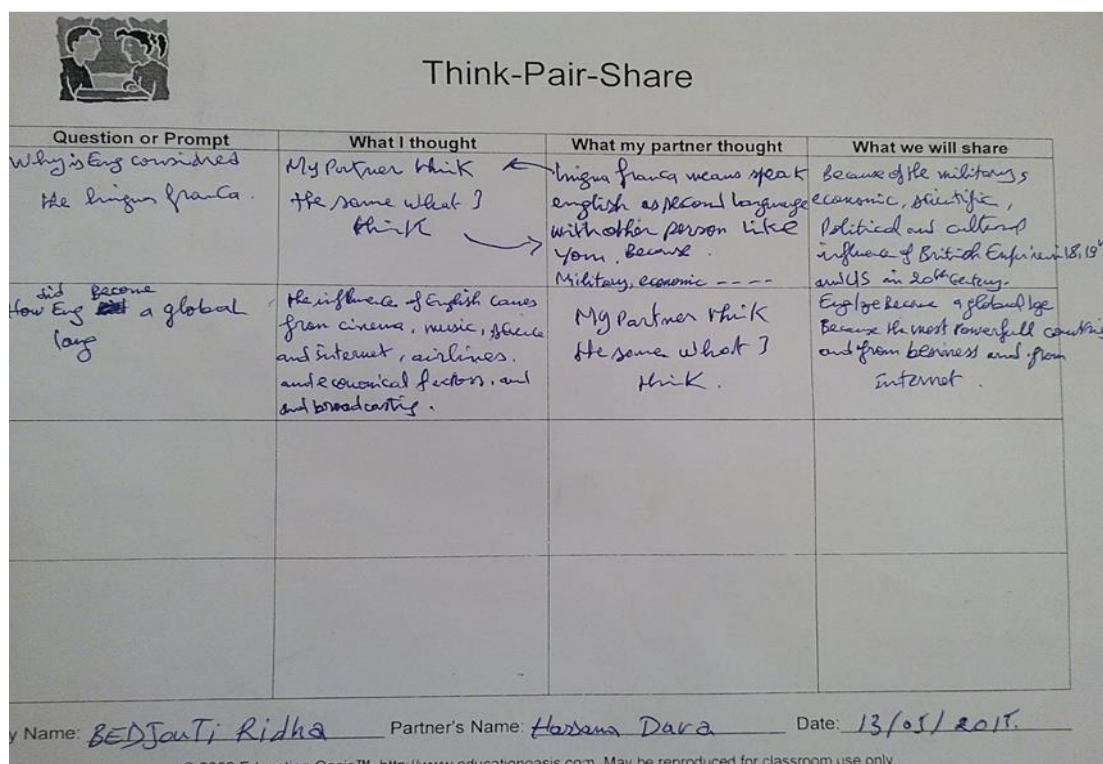 Think-Pair-Share
Question or Prompt
What I thought
What my partner thought
What we will share
Why is Eng considred
the lingua franca.
My Partner think
the same what I
think
lingua franca means speak
english as second language
with other person like
You. Because.
Military, economic ----
Because of the military,
economic, scientific,
Political and cultural
influence of British Empire in 18, 19th
and US in 20th Century.
did Become
How Eng a global
lang
the influence of English comes
from cinema, music, science
and internet, airlines.
and economical factors, and
and broadcasting.
My Partner think
the same what I
think.
Eng lge Become a global lge
Because the most Powerfull countries
and from besiness and from
internet.
y Name: BEDJOUTi Ridha
Partner's Name: Hassana Dara
Date: 13/05/2015.
Education Oasis™ http://www.educationoasis.com May be reproduced for classroom use only